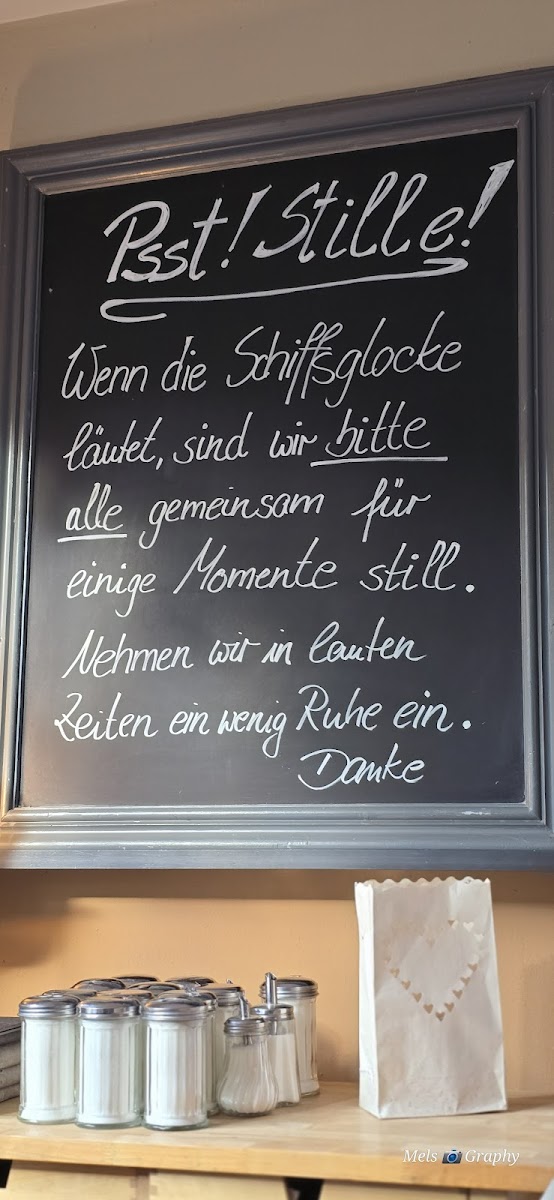 Psst! Stille!
Wenn die Schiffsglocke
läutet, sind wir bitte
alle gemeinsam für
einige Momente still.
Nehmen wir in lauten
Zeiten ein wenig Ruhe ein.
Danke
Mels Graphy